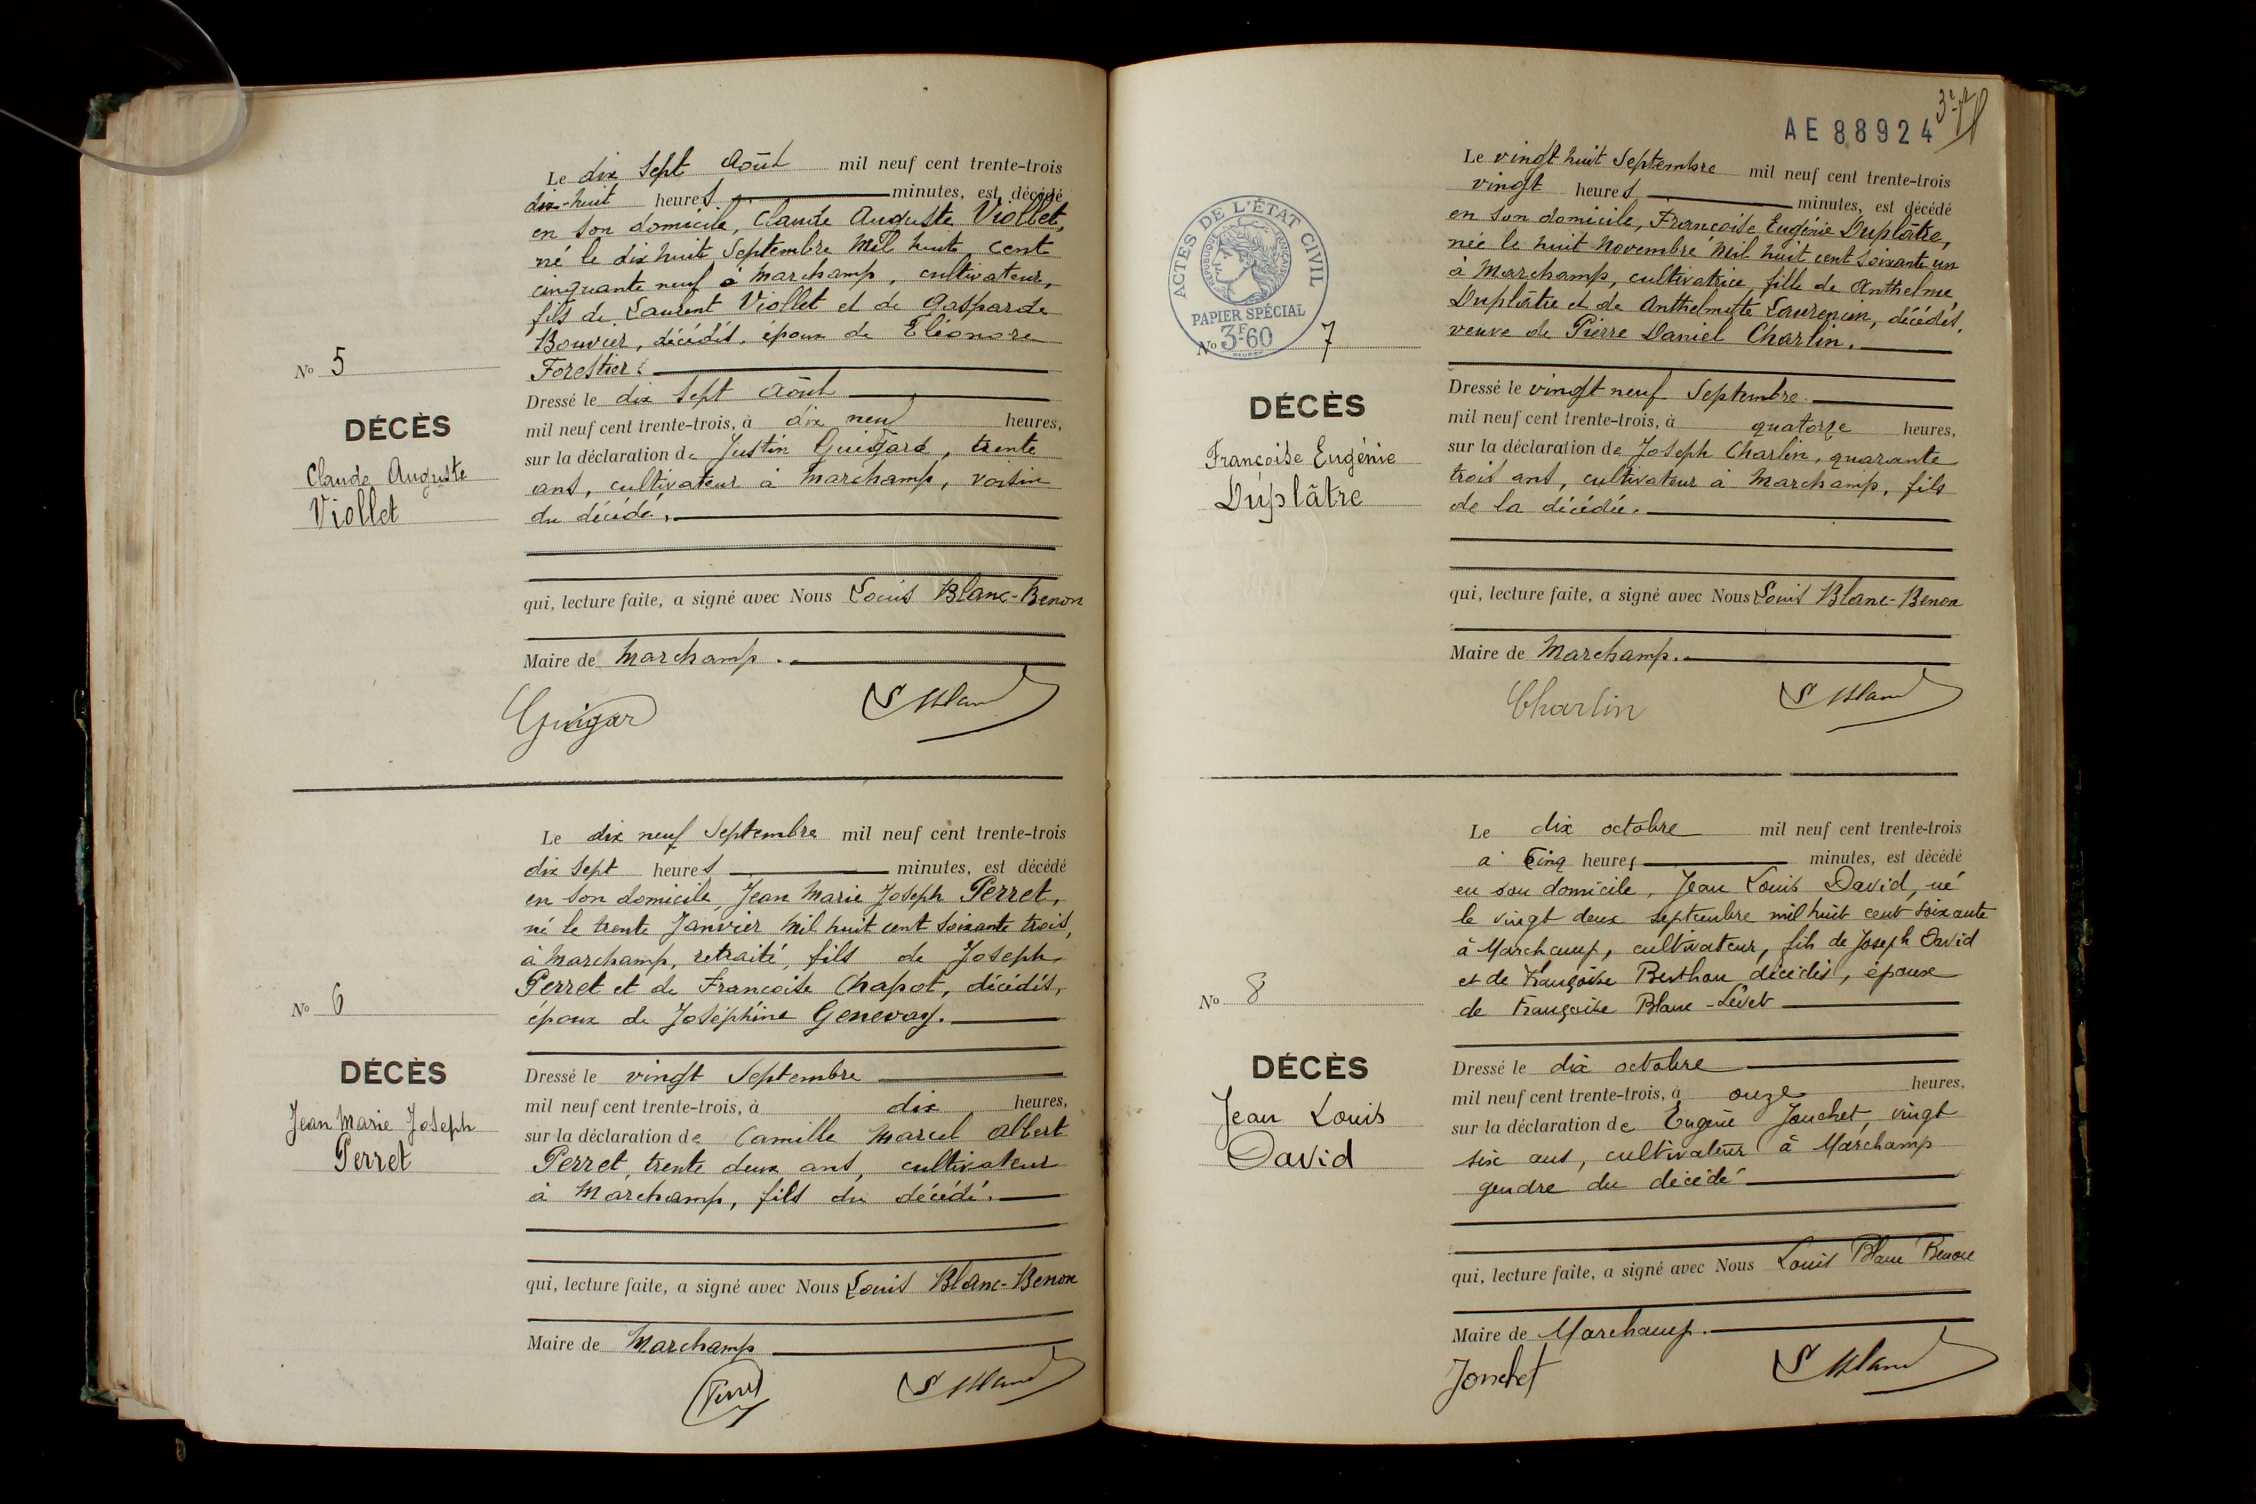 Le dix sept Août mil neuf cent trente-trois
dix-huit heures minutes, est décédé
en son domicile, Claude Auguste Viollet,
né le dix huit Septembre Mil huit cent
cinquante neuf à Marchamp, cultivateur,
fils de Laurent Viollet et de Gasparde
Bouvier, décédés, époux de Eléonore
Forestier.
No 5
DÉCÈS
Claude Auguste
Viollet
Dressé le dix sept Août
mil neuf cent trente-trois, à dix neuf heures,
sur la déclaration de Justin Guigard, trente
ans, cultivateur à Marchamp, voisin
du décédé.
qui, lecture faite, a signé avec Nous Louis Blanc-Benon
Maire de Marchamp.
Guigar
L Blanc
Le dix neuf Septembre mil neuf cent trente-trois
dix sept heures minutes, est décédé
en son domicile, Jean Marie Joseph Perret,
né le trente Janvier Mil huit cent soixante trois,
à Marchamp, retraité, fils de Joseph
Perret et de Francoise Chapot, décédés,
époux de Joséphine Genevay.
No 6
DÉCÈS
Jean Marie Joseph
Perret
Dressé le vingt Septembre
mil neuf cent trente-trois, à dix heures,
sur la déclaration de Camille Marcel Albert
Perret, trente deux ans, cultivateur
à Marchamp, fils du décédé.
qui, lecture faite, a signé avec Nous Louis Blanc-Benon
Maire de Marchamp
Perret
L Blanc
AE 88924
Le vingt huit Septembre mil neuf cent trente-trois
vingt heures minutes, est décédé
en son domicile, Francoise Eugénie Duplâtre,
née le huit Novembre Mil huit cent soixante un
à Marchamp, cultivatrice, fille de Anthelme
Duplâtre et de Anthelmette Laurencin, décédés,
veuve de Pierre Daniel Charlin.
ACTES DE L'ÉTAT CIVIL
RÉPUBLIQUE FRANÇAISE
PAPIER SPÉCIAL
3F60
No 7
DÉCÈS
Françoise Eugénie
Duplâtre
Dressé le vingt neuf Septembre
mil neuf cent trente-trois, à quatorze heures,
sur la déclaration de Joseph Charlin, quarante
trois ans, cultivateur à Marchamp, fils
de la décédée.
qui, lecture faite, a signé avec Nous Louis Blanc-Benon
Maire de Marchamp.
Charlin
L Blanc
Le dix octobre mil neuf cent trente-trois
à cinq heures minutes, est décédé
en son domicile, Jean Louis David, né
le vingt deux septembre mil huit cent soixante
à Marchamp, cultivateur, fils de Joseph David
et de Françoise Berthou décédés, époux
de Françoise Blanc-Levet
No 8
DÉCÈS
Jean Louis
David
Dressé le dix octobre
mil neuf cent trente-trois, à onze heures,
sur la déclaration de Eugène Jonchet, vingt
six ans, cultivateur à Marchamp
gendre du décédé
qui, lecture faite, a signé avec Nous Louis Blanc Benon
Maire de Marchamp.
Jonchet
L Blanc